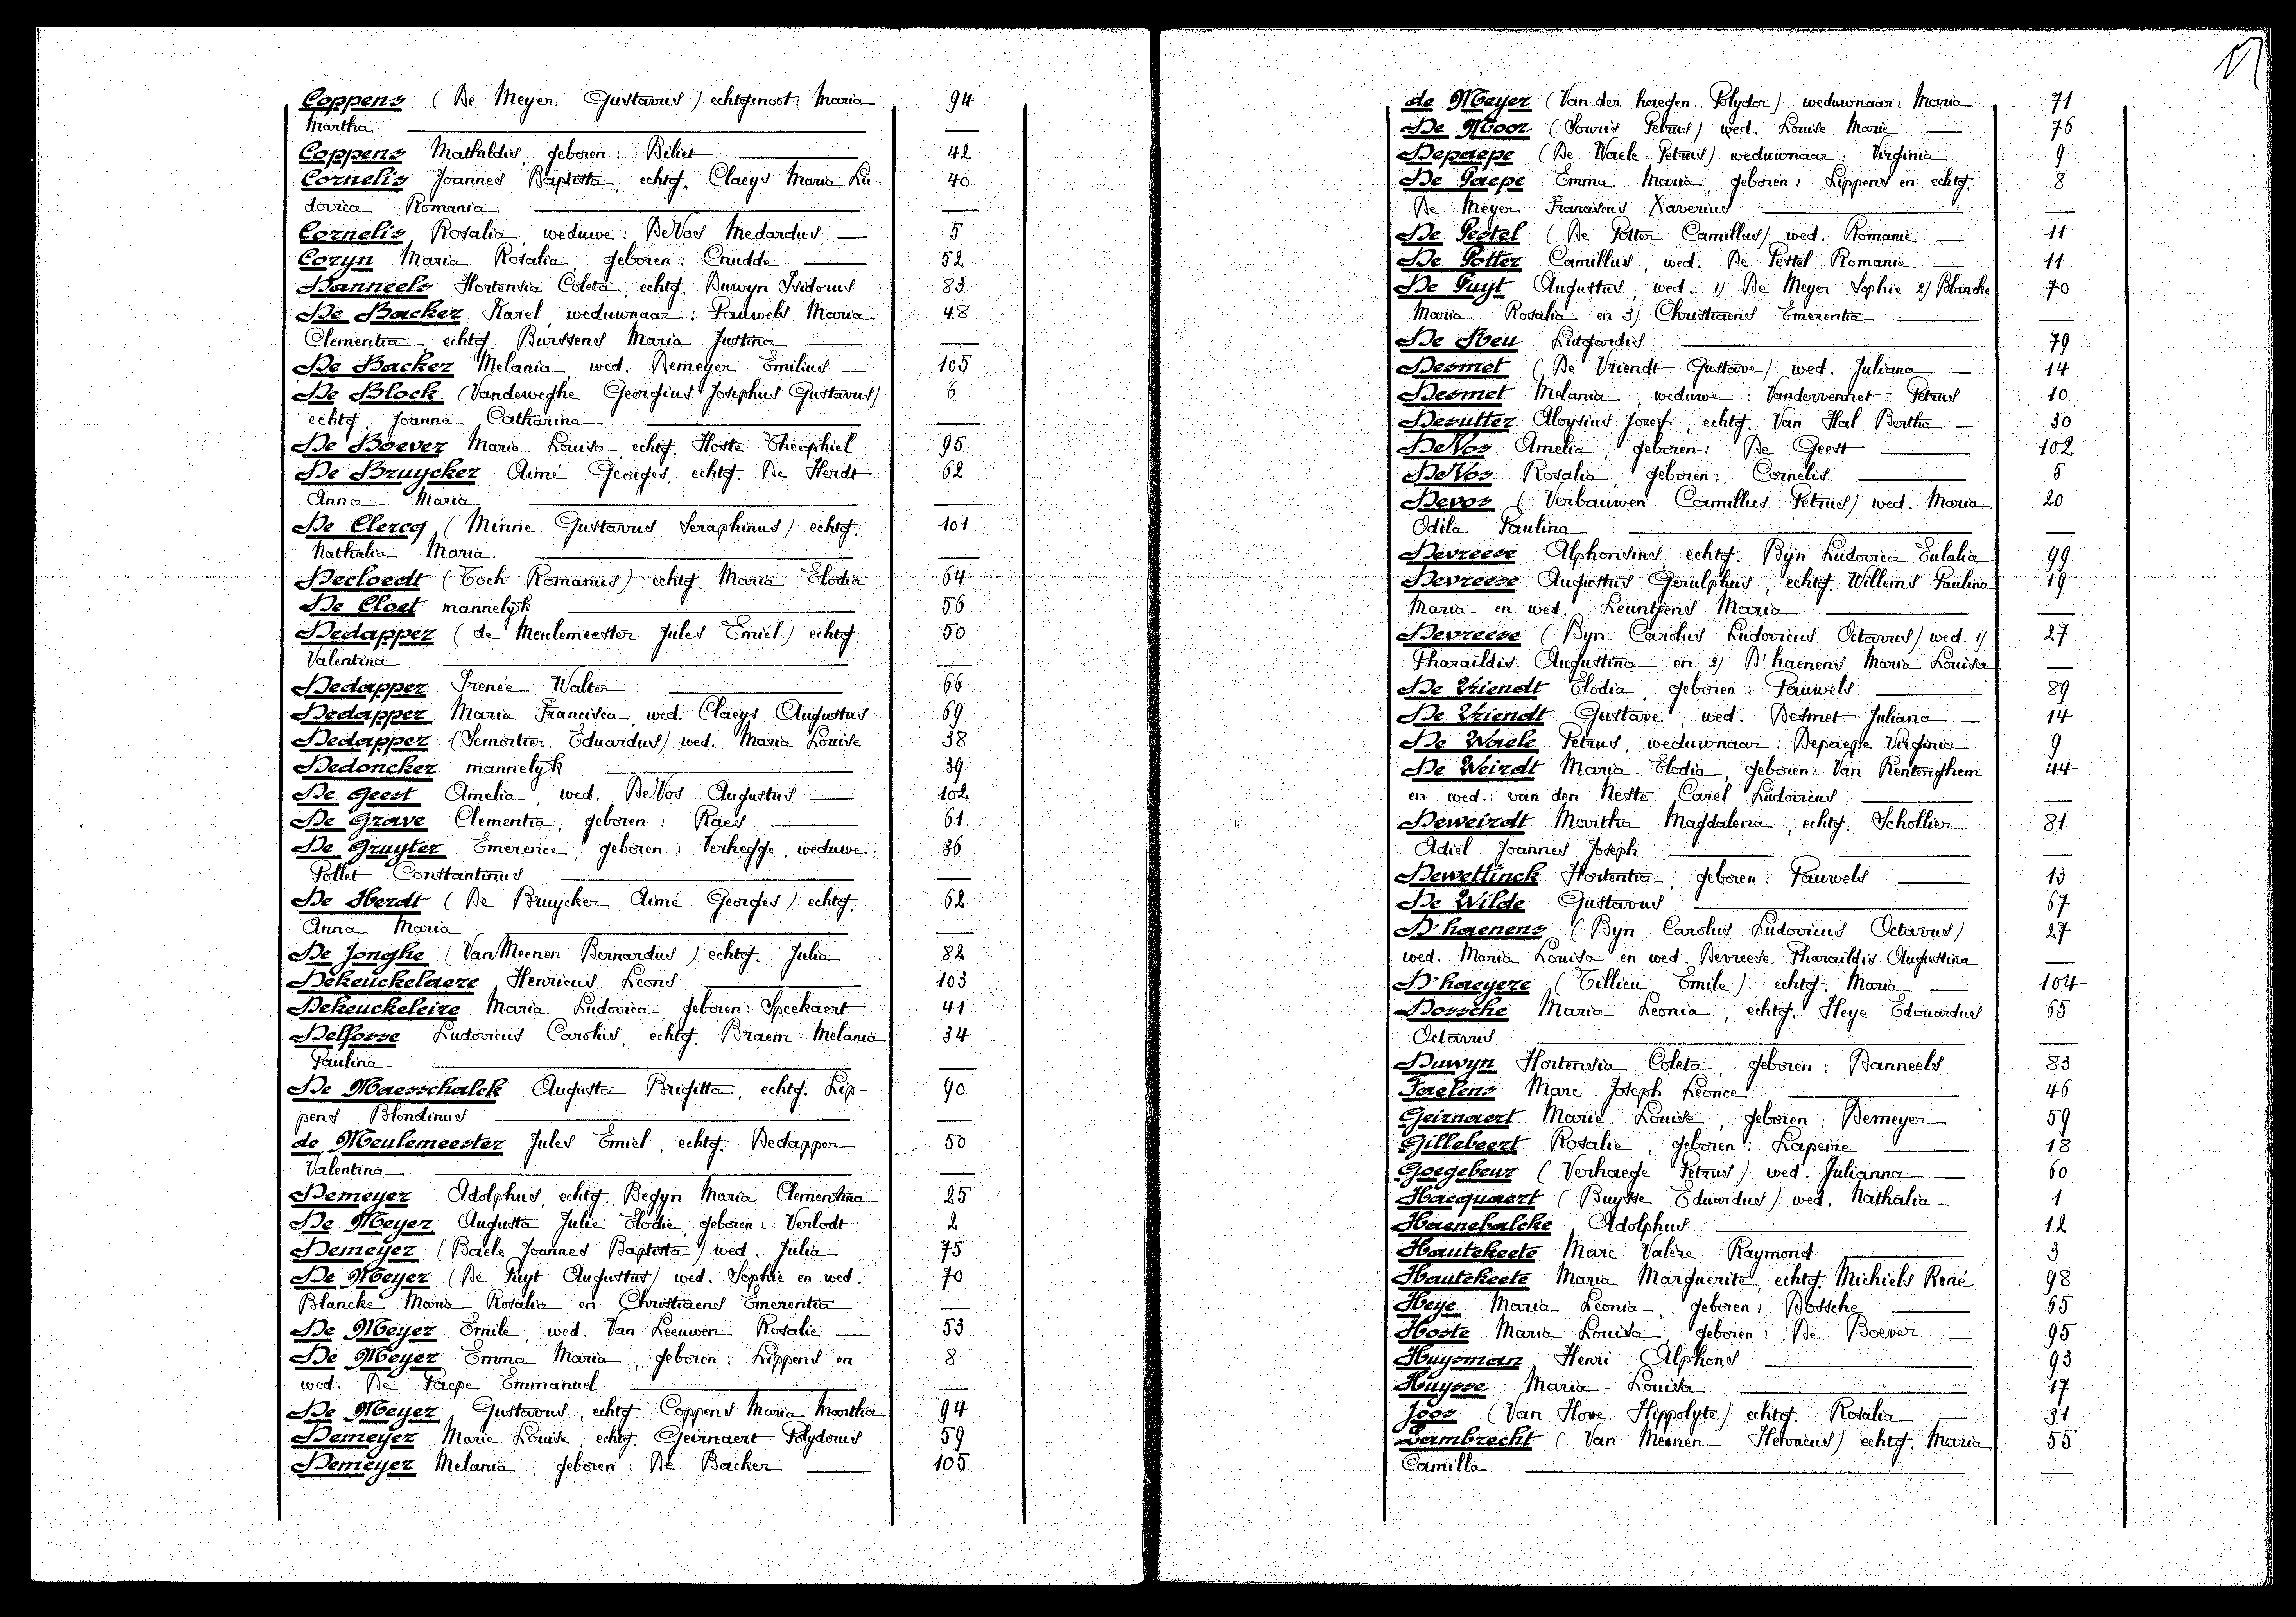 Coppens (De Meyer Gustavus) echtgenoot: Maria 94
Martha —
Coppens Mathildis, geboren: Biliet 42
Cornelis Joannes Baptista, echtg. Claeys Maria Lu- 40
dovica Romania —
Cornelis Rosalia, weduwe: DeVos Medardus — 5
Cozyn Maria Rosalia geboren: Crudde — 52
Danneels Hortensia Coleta, echtg. Duwyn Isidorus 83
De Backer Karel, weduwnaar: Pauwels Maria 48
Clementia, echtg. Burssens Maria Justina —
De Backer Melania, wed. Demeyer Emilius — 105
De Block (Vandeweghe Georgius Josephus Gustavus) 6
echtg. Joanna Catharina —
De Boever Maria Louisa, echtg. Hoste Theophiel 95
De Bruycker Aimé Georges, echtg. De Herdt 62
Anna Maria —
De Clercq (Minne Gustavus Seraphinus) echtg. 101
Nathalia Maria —
Decloedt (Toch Romanus) echtg. Maria Elodia 64
De Cloet mannelyk 56
Dedapper (de Meulemeester Jules Emiel) echtg. 50
Valentina —
Dedapper Irenée Walter 66
Dedapper Maria Francisca, wed. Claeys Augustus 69
Dedapper (Semortier Eduardus) wed. Maria Louise 38
Dedoncker mannelyk 39
De Geest Amelia, wed. DeVos Augustus — 102
De Grave Clementia, geboren: Raes — 61
De Gruyter Emerence, geboren: Verhegge, weduwe: 36
Pollet Constantinus —
De Herdt (De Bruycker Aimé Georges) echtg. 62
Anna Maria —
De Jonghe (VanMeenen Bernardus) echtg. Julia 82
Dekeuckelaere Henricus Leons 103
Dekeuckeleire Maria Ludovica, geboren: Speekaert 41
Delfosse Ludovicus Carolus, echtg. Braem Melania 34
Paulina —
De Maesschalck Augusta Brigitta, echtg. Lip- 90
pens Blondinus —
de Meulemeester Jules Emiel, echtg. Dedapper 50
Valentina —
Demeyer Adolphus, echtg. Begyn Maria Clementina 25
De Meyer Augusta Julie Elodie, geboren: Verlodt 2
Demeyer (Baele Joannes Baptista) wed. Julia 75
De Meyer (De Puyt Augustus) wed. Sophie en wed. 70
Blancke Maria Rosalia en Christiaens Emerentia —
De Meyer Emile, wed. Van Leeuwen Rosalie — 53
De Meyer Emma Maria, geboren: Lippens en 8
wed. De Paepe Emmanuel —
De Meyer, Gustavus, echtg. Coppens Maria Martha 94
Demeyer Marie Louise, echtg. Geirnaert Polydorus 59
Demeyer Melania, geboren: De Backer — 105
de Meyer (Van der haegen Polydor) weduwnaar: Maria 71
De Moor (Souris Petrus) wed. Louise Marie — 76
Depaepe (De Waele Petrus) weduwnaar: Virginia 9
De Paepe Emma Maria, geboren: Lippens en echtg. 8
De Meyer Franciscus Xaverius —
De Pestel (De Potter Camillus) wed. Romanie — 11
De Potter Camillus, wed. De Pestel Romanie — 11
De Puyt Augustus, wed. 1) De Meyer Sophie 2) Blancke 70
Maria Rosalia en 3) Christiaens Emerentia —
De Reu Lutgardis 79
Desmet (De Vriendt Gustave) wed. Juliana — 14
Desmet Melania, weduwe: Vandervennet Petrus 10
Desutter Aloysius Jozef, echtg. Van Hal Bertha — 30
DeVos Amelia, geboren: De Geest — 102
DeVos Rosalia, geboren: Cornelis — 5
Devos (Verbauwen Camillus Petrus) wed. Maria 20
Odila Paulina —
Devreese Alphonsius, echtg. Bÿn Ludovica Eulalia 99
Devreese Augustus Gerulphus, echtg. Willems Paulina 19
Maria en wed. Leuntjens Maria —
Devreese (Byn Carolus Ludovicus Octavus) wed. 1) 27
Pharaildis Augustina en 2) D'haenens Maria Louisa —
De Vriendt Elodia, geboren: Pauwels — 89
De Vriendt Gustave, wed. Desmet Juliana — 14
De Waele Petrus, weduwnaar: Depaepe Virginia 9
De Weirdt Maria Elodia, geboren: Van Renterghem 44
en wed.: van den Neste Carel Ludovicus —
Deweirdt Martha Magdalena, echtg. Schollier 81
Adiel Joannes Joseph —
Dewettinck Hortentia, geboren: Pauwels — 13
De Wilde Gustavus 67
D'haenens (Byn Carolus Ludovicus Octavus) 27
wed. Maria Louisa en wed. Devreese Pharaildis Augustina —
D'haeyere (Tillieu Emile) echtg. Maria — 104
Dossche Maria Leonia, echtg. Heye Edouardus 65
Octavus —
Duwyn Hortensia Coleta, geboren: Danneels 83
Faelens Marc Joseph Leonce 46
Geirnaert Marie Louise, geboren: Demeyer 59
Gillebeert Rosalie, geboren: Lapeire 18
Goegebeur (Verhaege Petrus) wed. Julianna — 60
Hacquaert (Buysse Eduardus) wed. Nathalia 1
Haenebalcke Adolphus 12
Hautekeete Marc Valère Raymond 3
Hautekeete Maria Marguerite, echtg. Michiels René 98
Heye Maria Leonia, geboren: Dossche — 65
Hoste Maria Louisa, geboren: De Boever — 95
Huysman Henri Alphons 93
Huysse Maria-Louisa 17
Joos (Van Hove Hippolyte) echtg. Rosalia — 31
Lambrecht (Van Meenen Henricus) echtg. Maria 55
Camilla —